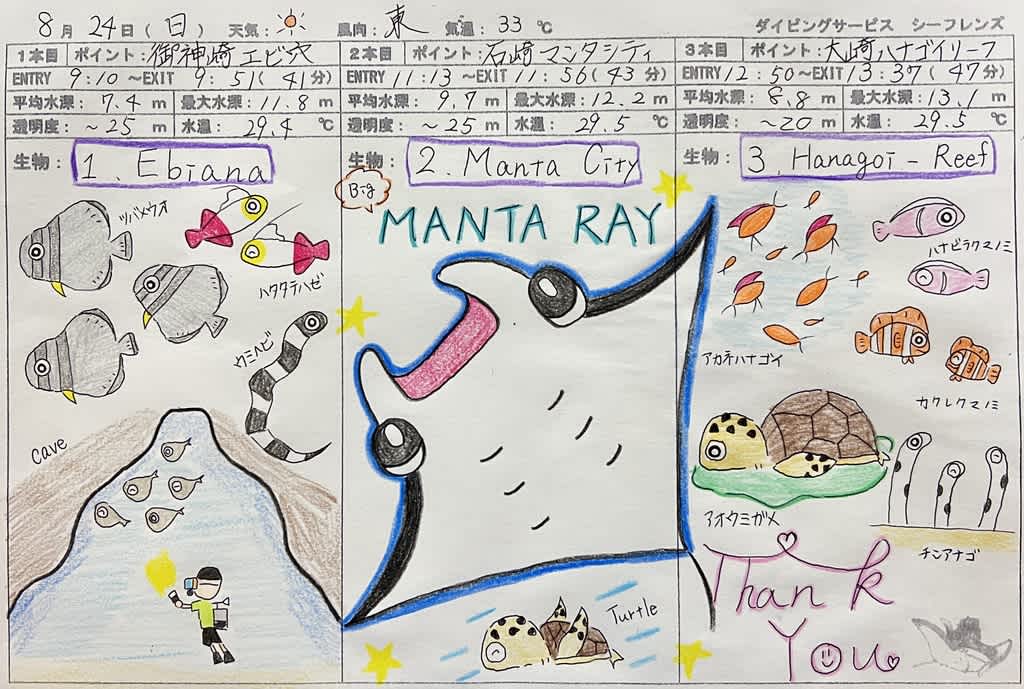 8月24日(日) 天気: 風向:東 気温:33℃ ダイビングサービス シーフレンズ
1本目 ポイント:御神崎エビ穴
ENTRY 9:10~EXIT 9:51(41分)
平均水深:7.4m 最大水深:11.8m
透明度:~25m 水温:29.4℃
生物: 1. Ebiana
ツバメウオ
ハタタテハゼ
ウミヘビ
cave
2本目 ポイント:石崎マンタシティ
ENTRY 11:13~EXIT 11:56(43分)
平均水深:9.7m 最大水深:12.2m
透明度:~25m 水温:29.5℃
生物: 2. Manta City
Big
MANTA RAY
Turtle
3本目 ポイント:大崎ハナゴイリーフ
ENTRY 12:50~EXIT 13:37(47分)
平均水深:8.8m 最大水深:13.1m
透明度:~20m 水温:29.5℃
生物: 3. Hanagoi-Reef
ハナビラクマノミ
アカネハナゴイ
カクレクマノミ
アオウミガメ
チンアナゴ
Thank
You